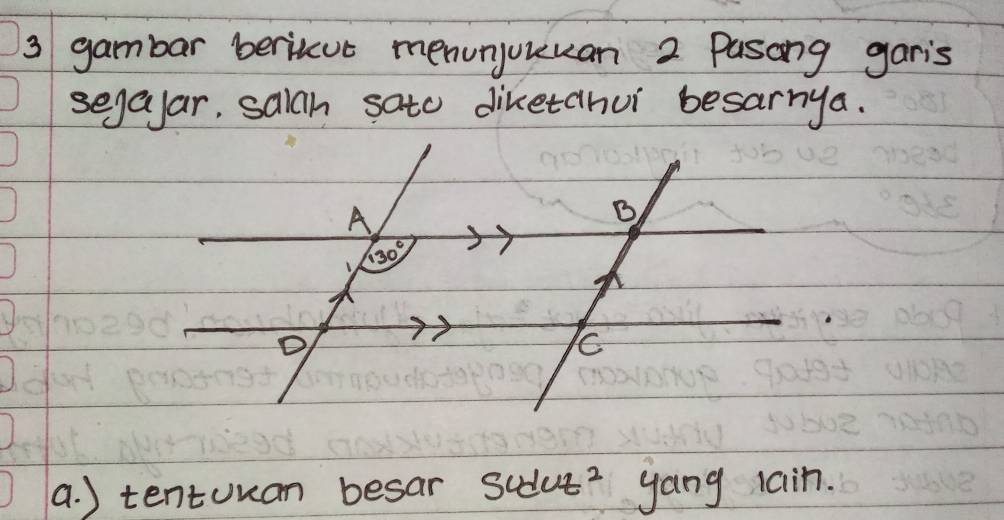 3 gambar berikut menunjukkan 2 Pasang garis
sejajar. salah satu diketahui besarnya.
A
B
130°
D
C
a.) tentukan besar sudut² yang lain.